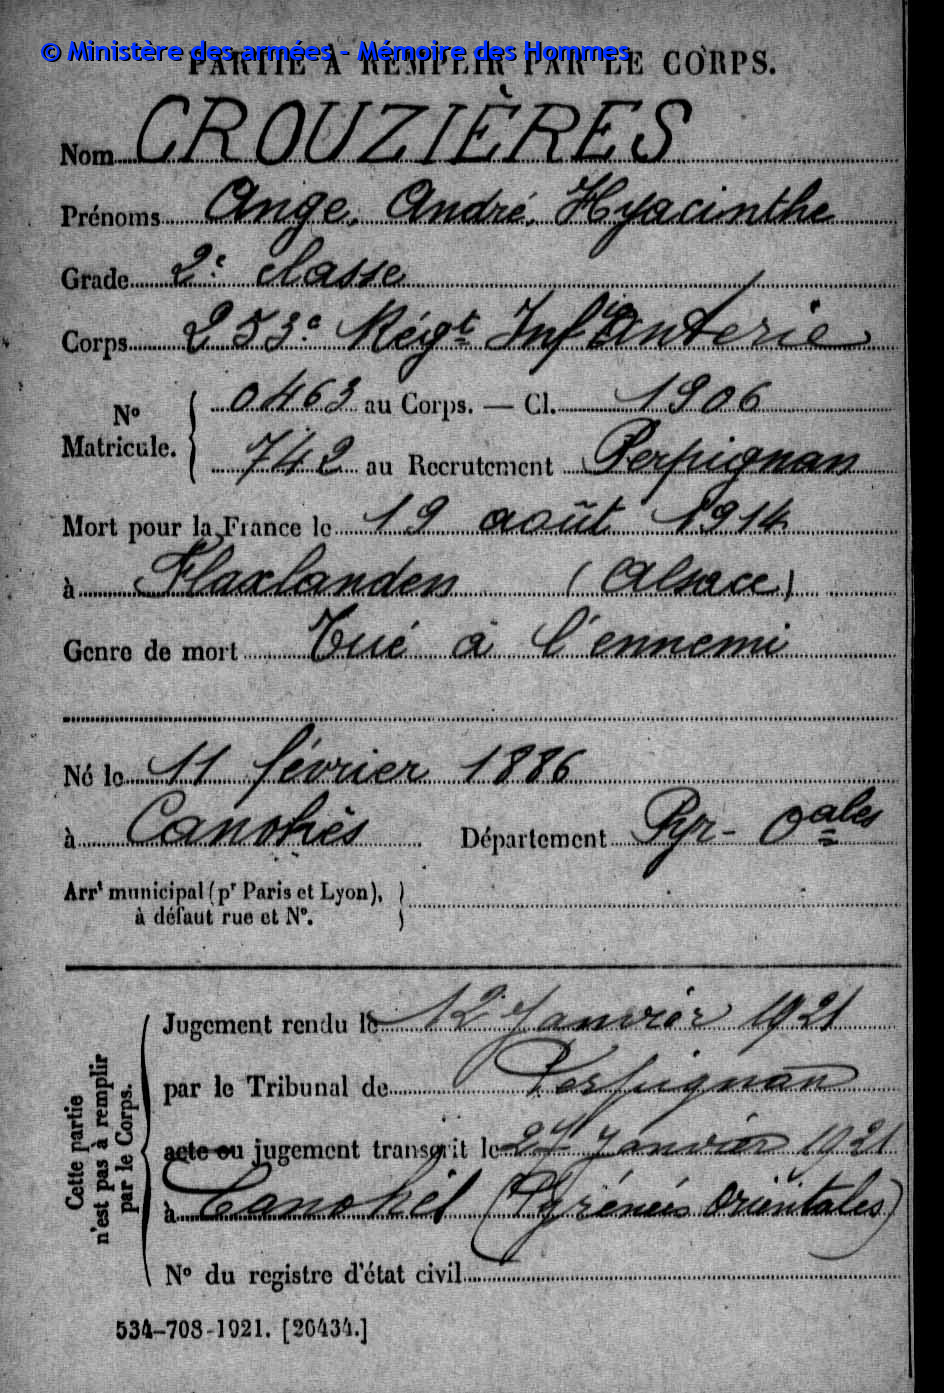 © Ministère des armées - Mémoire des Hommes
PARTIE À REMPLIR PAR LE CORPS.
Nom CROUZIÈRES
Prénoms Ange, André, Hyacinthe
Grade 2e classe
Corps 253e Régt Infanterie
No Matricule. 0463 au Corps. — Cl. 1906
742 au Recrutement Perpignan
Mort pour la France le 19 août 1914
à Flaxlanden (Alsace)
Genre de mort Tué à l'ennemi
Né le 11 février 1886
à Canohès Département Pyr- Oales
Arrt municipal (pr Paris et Lyon),
à défaut rue et No.
Cette partie n'est pas à remplir par le Corps.
Jugement rendu le 12 Janvier 1921
par le Tribunal de Perpignan
acte ou jugement transcrit le 27 janvier 1921
à Canohès (Pyrénées Orientales)
No du registre d'état civil
534-708-1921. [26434.]